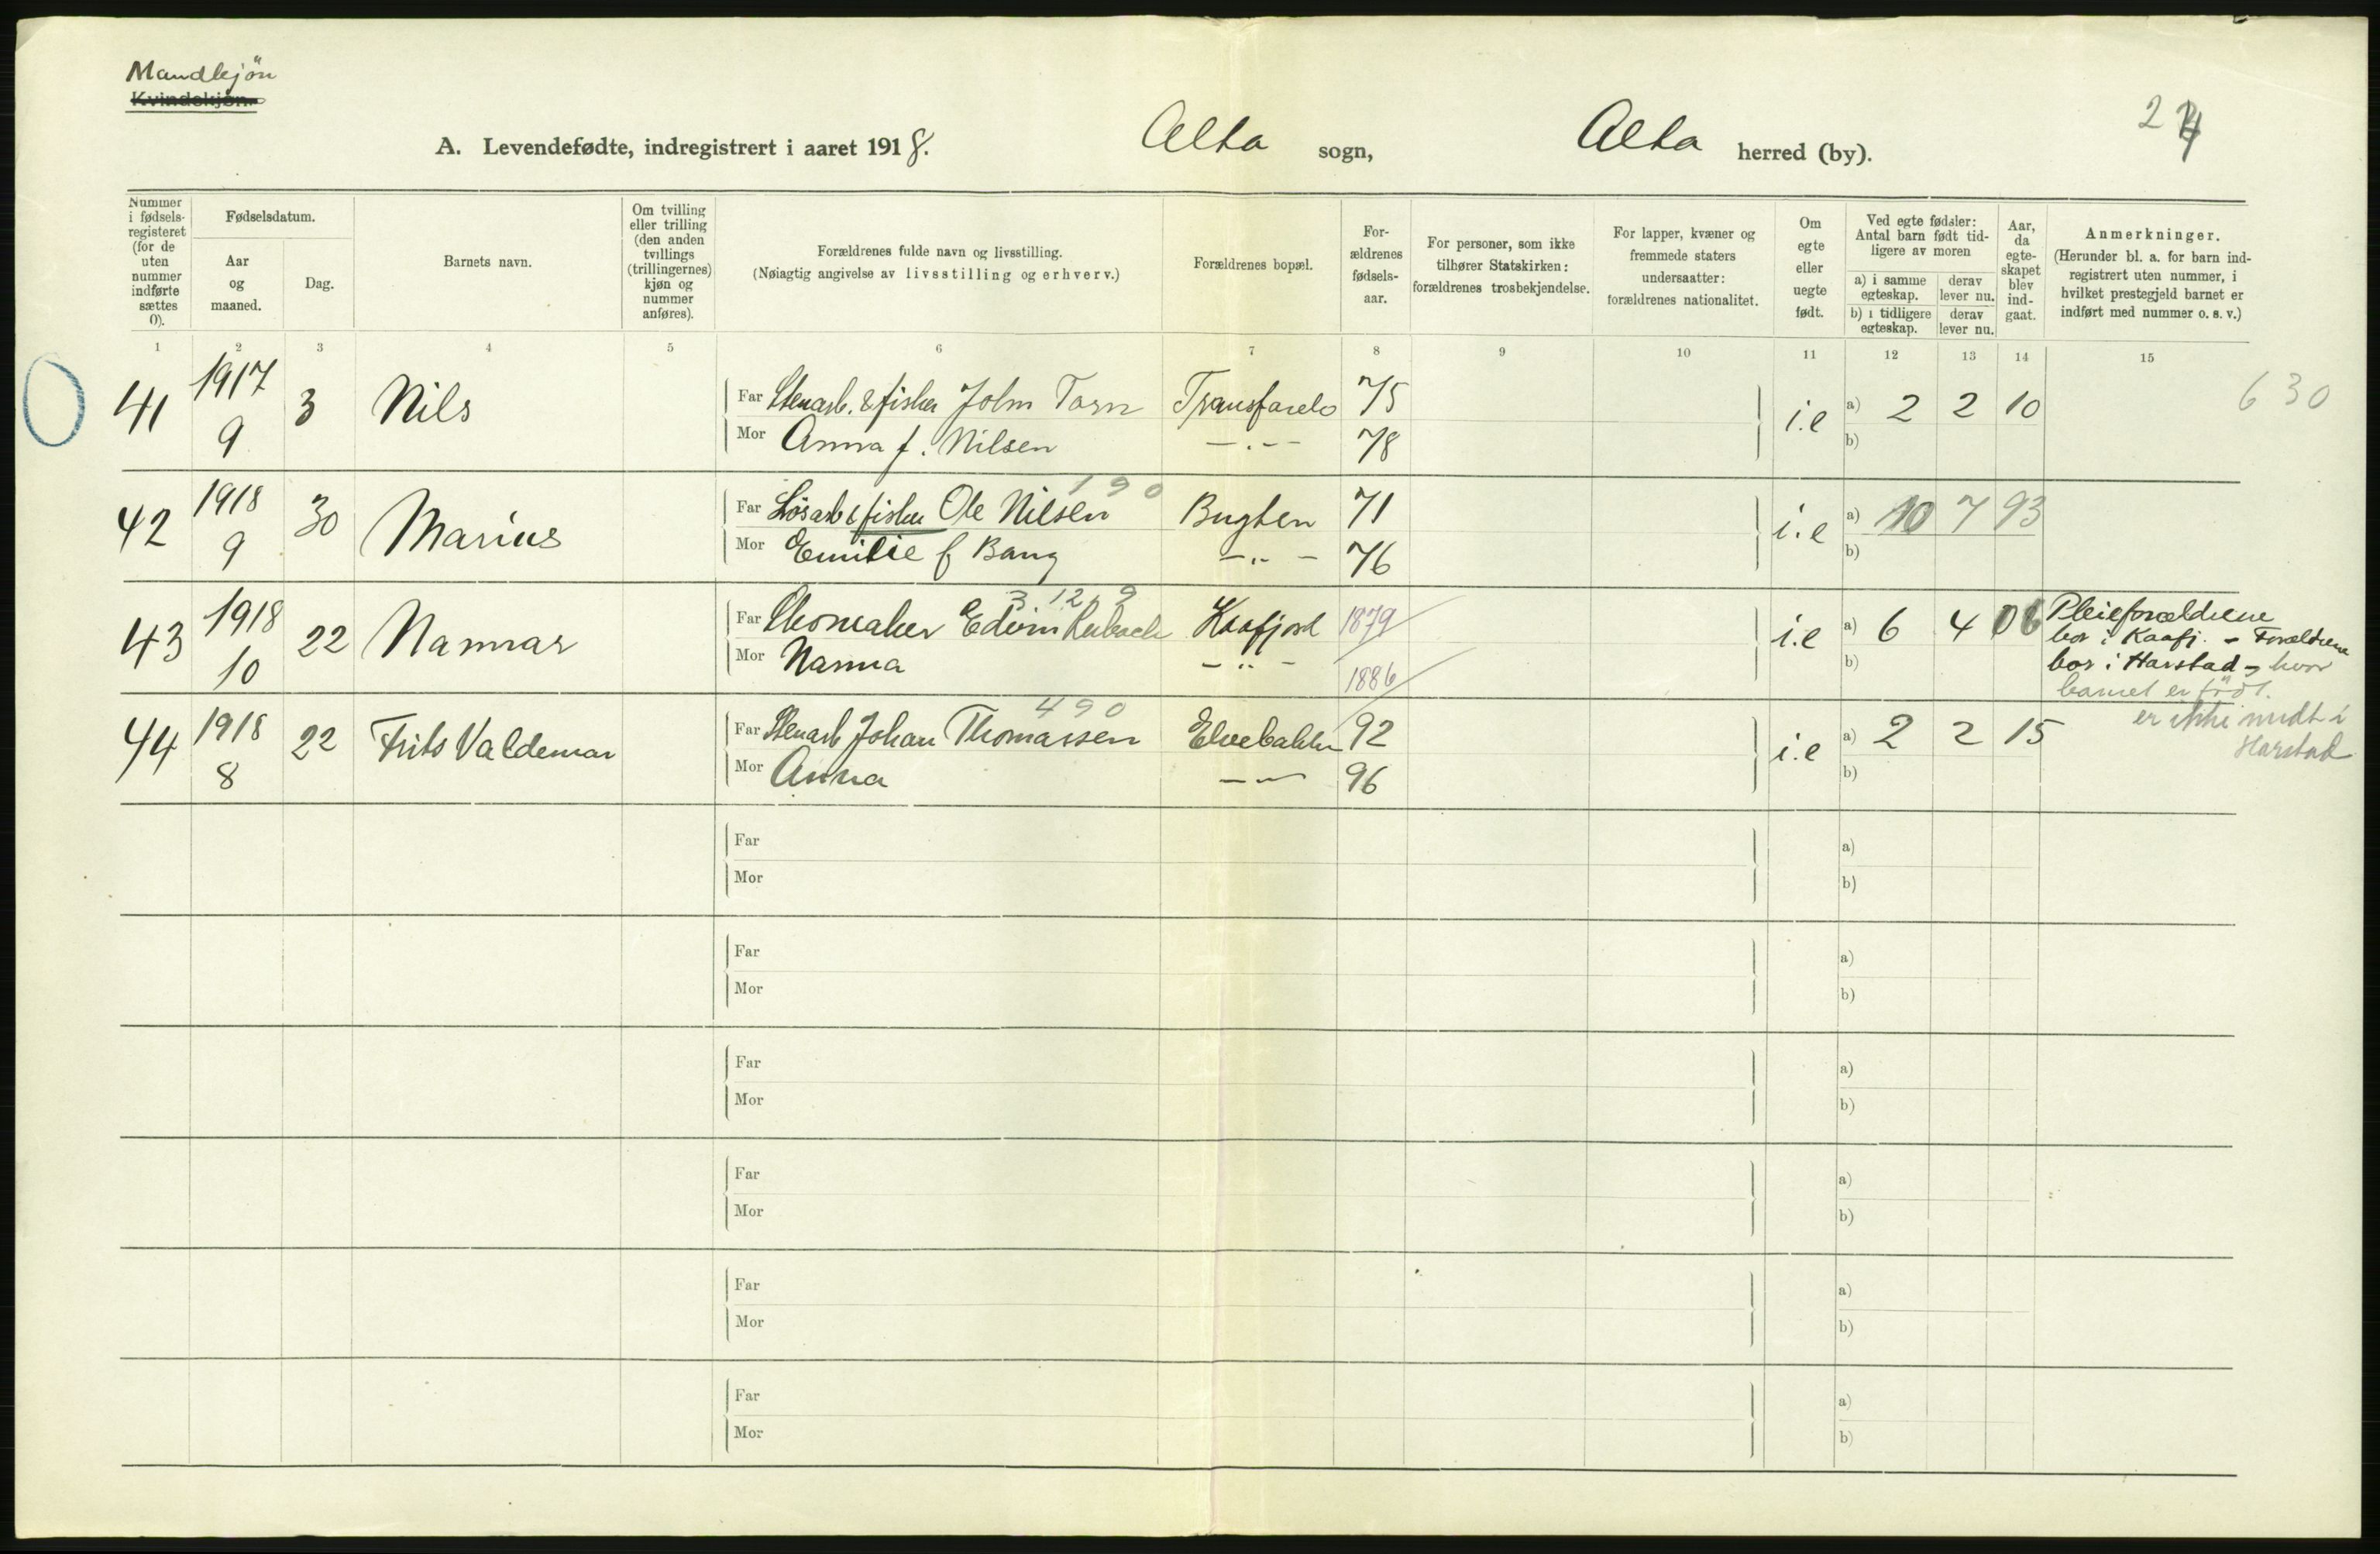 Mandkjøn
Kvindekjøn.
A. Levendefødte, indregistrert i aaret 1918.
Alta sogn,
Alta herred (by).
Nummer i fødsels-registeret (for de uten nummer indførte sættes 0).
Fødselsdatum.
Aar og maaned.
Dag.
Barnets navn.
Om tvilling eller trilling (den anden tvillings (trillingernes) kjøn og nummer anføres).
Forældrenes fulde navn og livsstilling.
(Nøiagtig angivelse av livsstilling og erhverv.)
Forældrenes bopæl.
For-ældrenes fødsels-aar.
For personer, som ikke tilhører Statskirken: forældrenes trosbekjendelse.
For lapper, kvæner og fremmede staters undersaatter: forældrenes nationalitet.
Om egte eller uegte født.
Ved egte fødsler: Antal barn født tid-ligere av moren
a) i samme egteskap.
derav lever nu.
b) i tidligere egteskap.
derav lever nu.
Aar, da egte-skapet blev ind-gaat.
Anmerkninger.
(Herunder bl. a. for barn ind-registrert uten nummer, i hvilket prestegjeld barnet er indført med nummer o. s. v.)
1 2 3 4 5 6 7 8 9 10 11 12 13 14 15
41 1917 9 3 Nils Far Stenarb. & fisker John Torn 75 i.e a) 2 2 10 630
Mor Anna f. Nilsen -.- 78 b)
190
42 1918 9 30 Marius Far Løsarb & fisker Ole Nilsen Bugten 71 i.e a) 10 7 93
Mor Emilie f Bang -..- 76 b)
43 1918 10 22 Nannar Far Skomaker Edvin Kaafjord 1879 i.e a) 6 4 06 Pleieforældrene
bor i Kaafj. - Forældrene
Mor Nanna -..- 1886 b) bor i Harstad, hvor
barnet er født.
490
er ikke meldt i
Harstad
44 1918 8 22 Frits Valdemar Far Stenarb Johan Thomassen Elvebakken 92 i.e a) 2 2 15
Mor Anna 96 b)
Far a)
Mor b)
Far a)
Mor b)
Far a)
Mor b)
Far a)
Mor b)
Far a)
Mor b)
Far a)
Mor b)